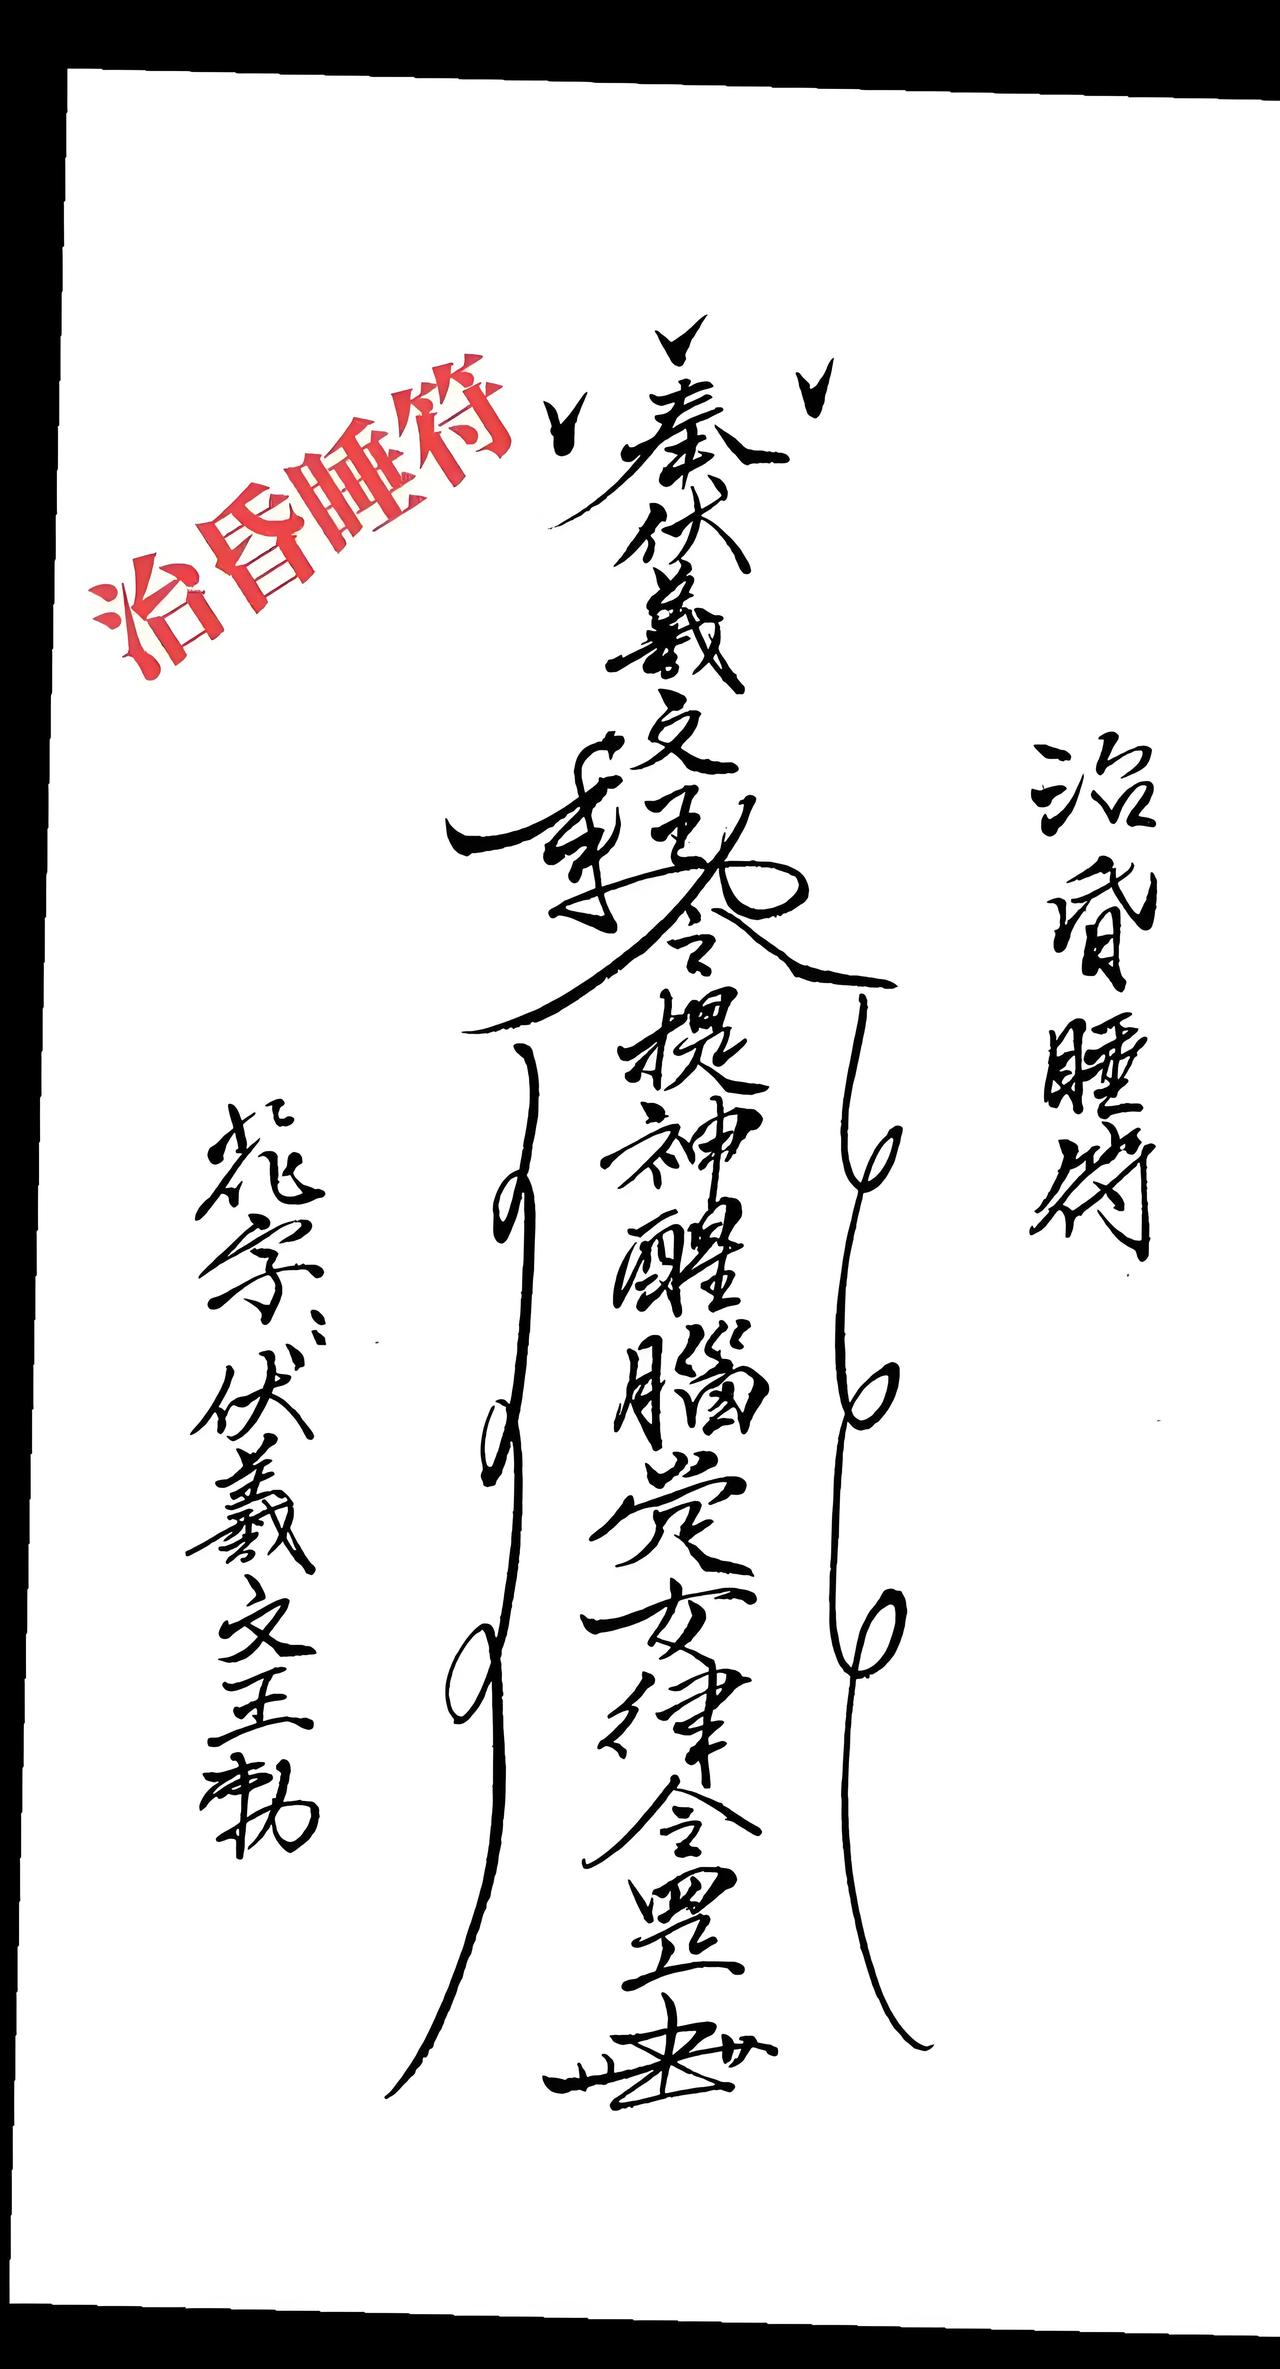 治昏睡符
治昏睡符
奉伏羲文王
勅令
提神醒腦
女律令罡
花字:伏羲文王勅